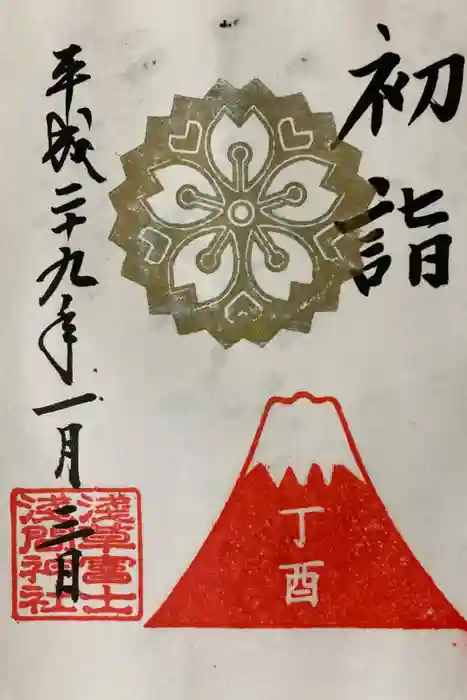 初詣
丁酉
平成二十九年一月三日
淺草富士
浅間神社